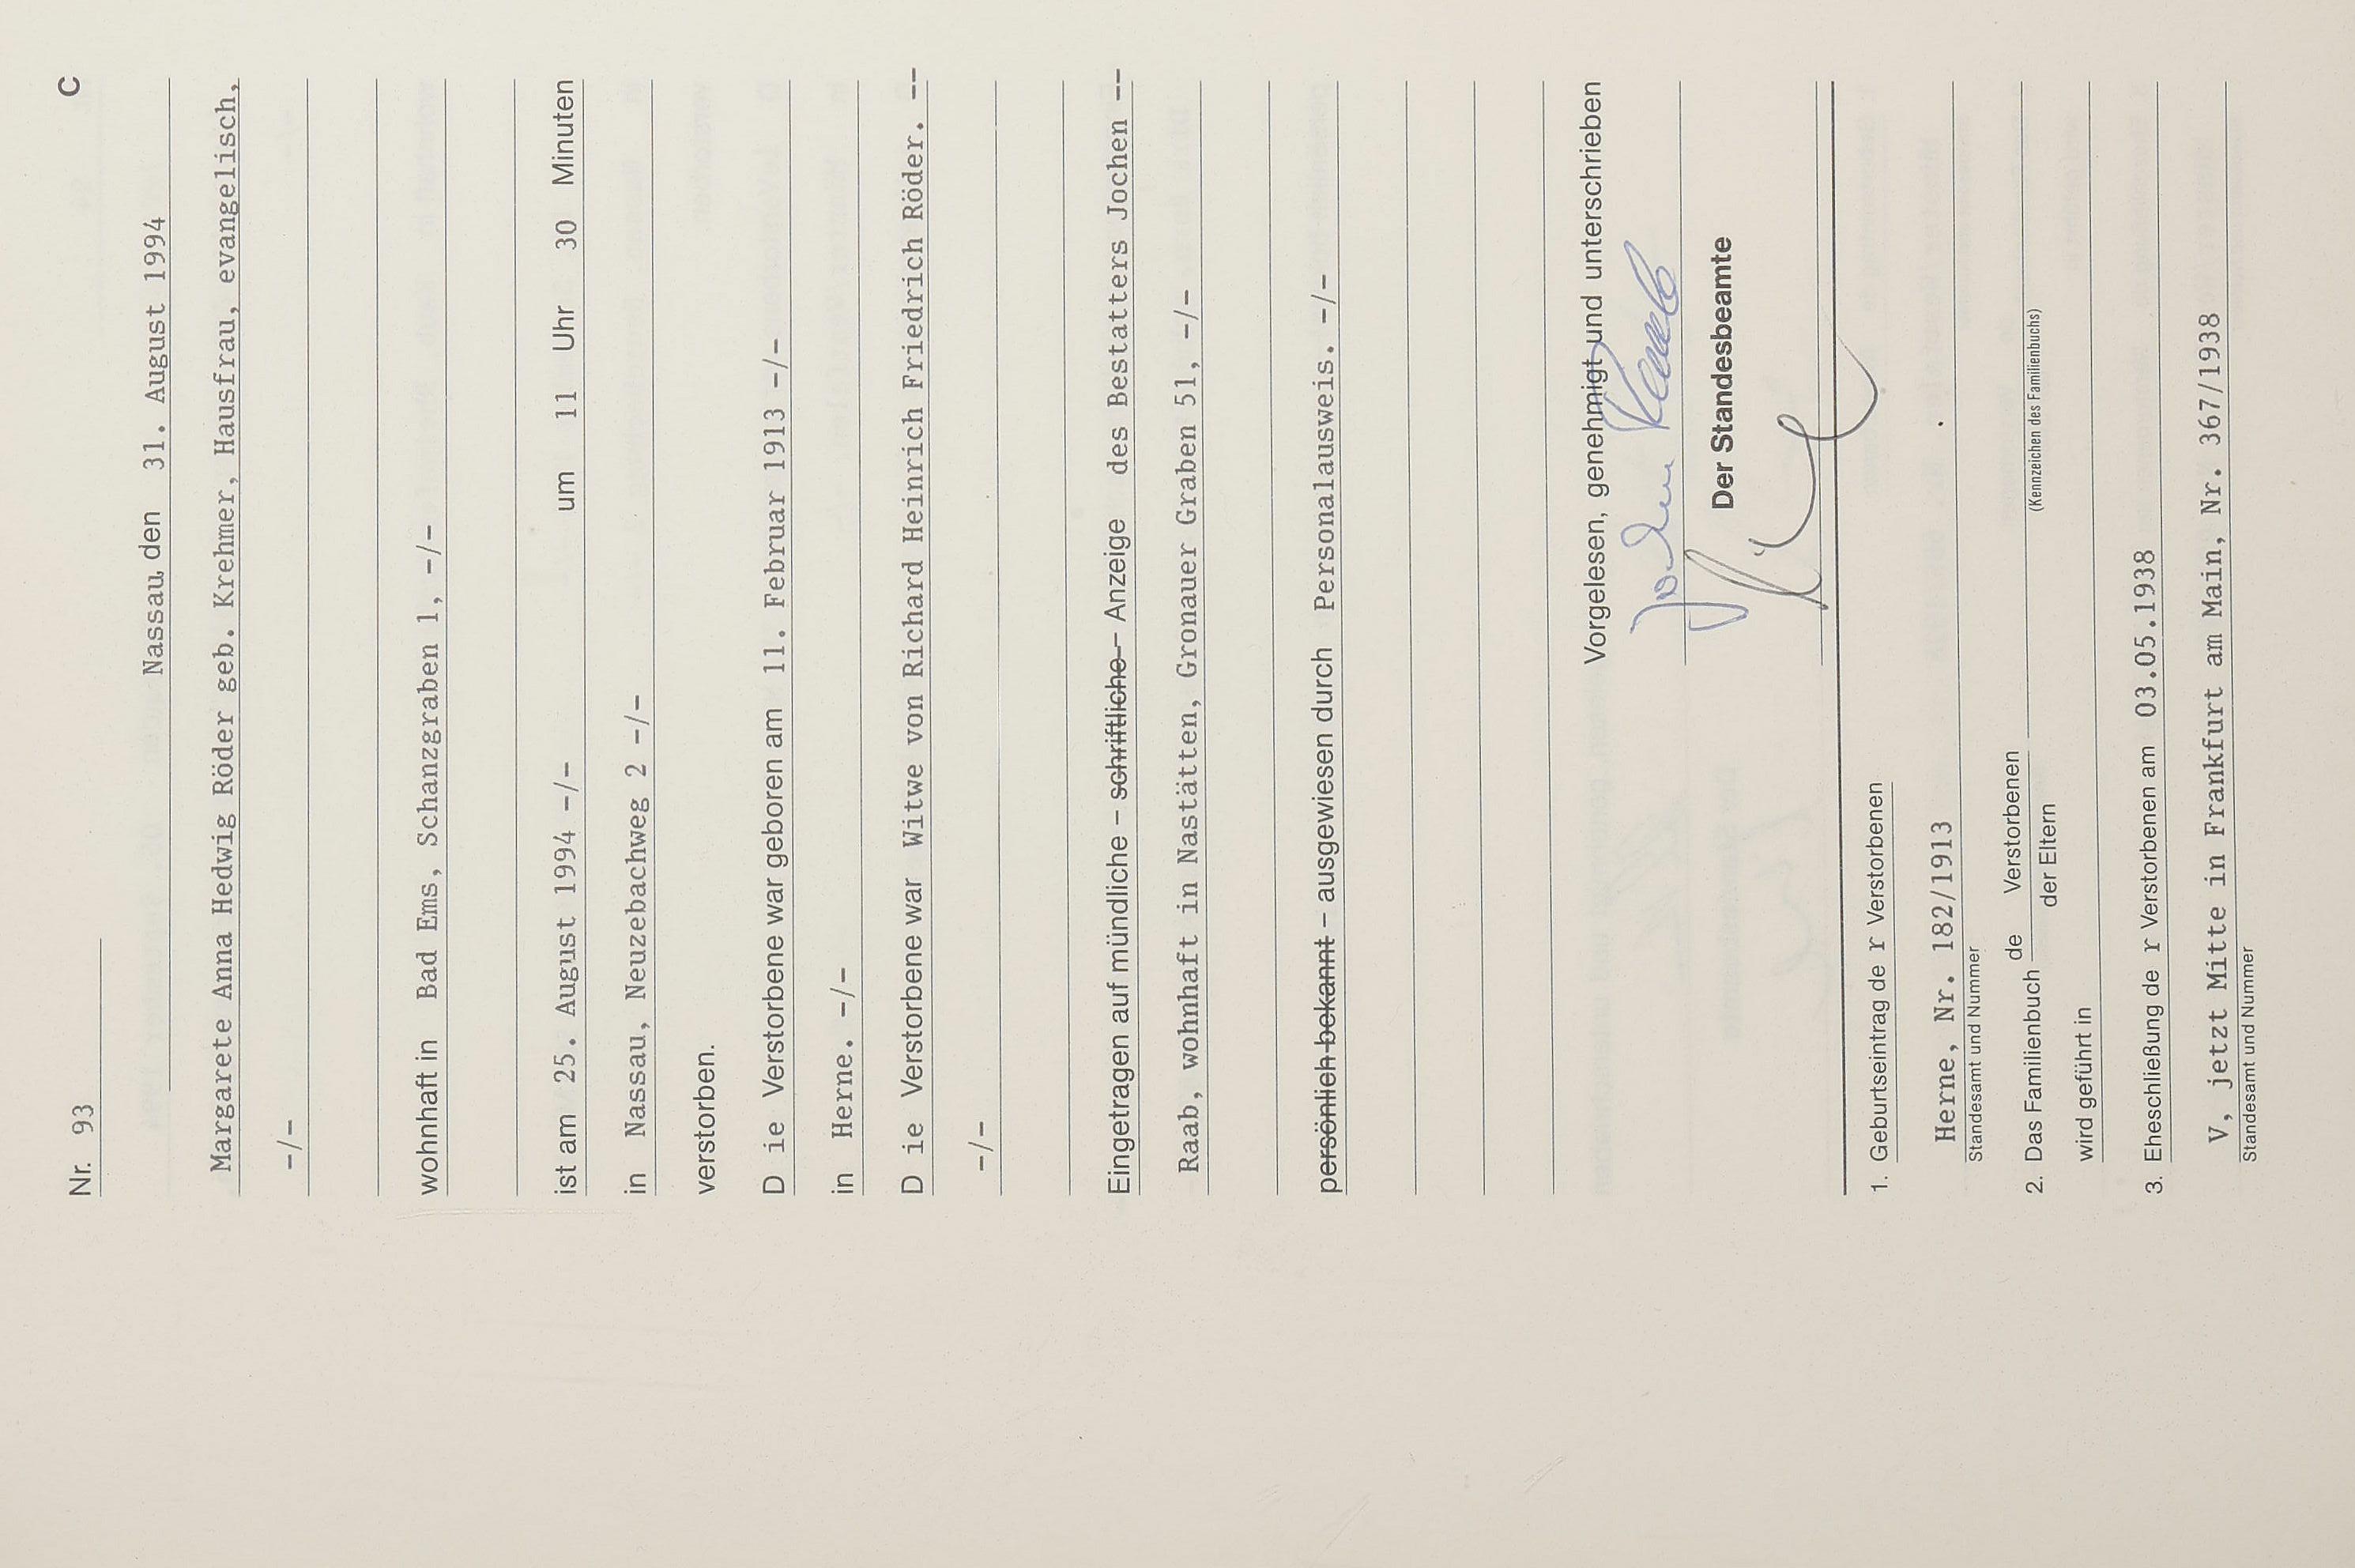 Nr. 93 C
Nassau, den 31. August 1994
Margarete Anna Hedwig Röder geb. Krehmer, Hausfrau, evangelisch,
-/-
wohnhaft in Bad Ems, Schanzgraben 1, -/-
ist am 25. August 1994 -/- um 11 Uhr 30 Minuten
in Nassau, Neuzebachweg 2 -/-
verstorben.
D ie Verstorbene war geboren am 11. Februar 1913 -/-
in Herne. -/-
D ie Verstorbene war Witwe von Richard Heinrich Friedrich Röder. --
-/-
Eingetragen auf mündliche – schriftliche – Anzeige des Bestatters Jochen --
Raab, wohnhaft in Nastätten, Gronauer Graben 51, -/-
persönlich bekannt – ausgewiesen durch Personalausweis. -/-
Vorgelesen, genehmigt und unterschrieben
Jochen Raab
Der Standesbeamte
1. Geburtseintrag de r Verstorbenen
Herne, Nr. 182/1913
Standesamt und Nummer
2. Das Familienbuch de Verstorbenen
der Eltern
(Kennzeichen des Familienbuchs)
wird geführt in
3. Eheschließung de r Verstorbenen am 03.05.1938
V, jetzt Mitte in Frankfurt am Main, Nr. 367/1938
Standesamt und Nummer